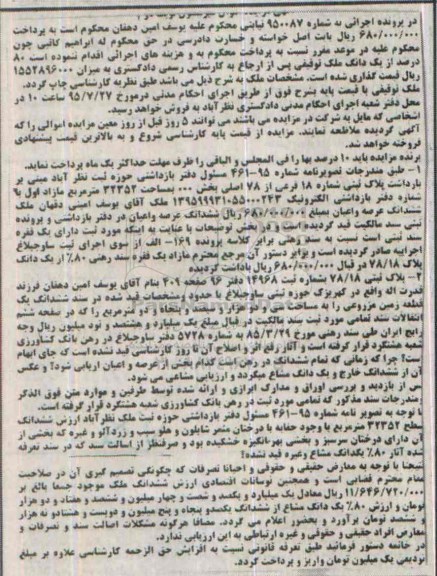 در پرونده اجرائی به شماره ۹۵۰۰۸۷ نیابتی محکوم علیه یوسف امین دهقان محکوم است به پرداخت
۶۸۰/۰۰۰/۰۰۰ ریال بابت اصل خواسته و خسارت دادرسی در حق محکوم له ابراهیم کاتبی چون
محکوم علیه در موعد مقرر نسبت به پرداخت محکوم به و هزینه های اجرائی اقدام ننموده است ۸۰
درصد از یک دانگ ملک توقیفی پس از ارجاع به کارشناس رسمی دادگستری به میزان ۱۵۵۲۸۹۶۰۰۰
ریال قیمت گذاری شده است. مشخصات ملک به شرح ذیل می باشد طبق نظریه کارشناسی چاپ گردد.
ملک توقیفی با قیمت پایه بشرح فوق از طریق اجرای احکام مدنی درمورخ ۹۵/۷/۲۷ ساعت ۱۰ در
محل دفتر شعبه اجرای احکام مدنی دادگستری نظرآباد به فروش خواهد رسید.
اشخاصی که مایل به شرکت در مزایده می باشند می توانند ۵ روز قبل از روز معین مزایده اموالی را که
آگهی گردیده ملاحظه نمایند. مزایده از قیمت پایه کارشناسی شروع و به بالاترین قیمت پیشنهادی
فروخته خواهد شد.
برنده مزایده باید ۱۰ درصد بها را فی المجلس و الباقی را ظرف مهلت حداکثر یک ماه پرداخت نماید.
۱- طبق مندرجات تصویرنامه شماره ۹۵-۴۶۱ مسئول دفتر بازداشتی حوزه ثبت نظر آباد مبنی بر
بازداشت پلاک ثبتی شماره ۱۸ فرعی از ۷۸ اصلی بخش ... بمساحت ۳۲۳۵۲ مترمربع مازاد اول با
شماره دفتر بازداشتی الکترونیک ۱۳۹۵۹۹۳۱۰۵۵۰۰۰۲۲۳ ملک آقای یوسف امینی دهقان ملک
ششدانگ عرصه واعیان بمبلغ ۶۸۰/۰۰۰/۰۰۰ ریال ششدانگ عرصه واعیان در دفتر بازداشتی و پرونده
ثبتی سند مالکیت قید گردیده است و در بخش توضیحات با عنایت به اینکه مورد ثبت دارای یک فقره
سند ثبتی است نسبت به سند رهنی برابر کلاسه پرونده ۱۶۹- الف از سوی اجرای ثبت ساوجبلاغ
اجراییه صادر گردیده است و برابر دستور آن مرجع محترم مازاد یک فقره سند رهنی ۸۰٪ از یک دانگ
پلاک ۷۸/۱۸ در قبال ۶۸۰/۰۰۰/۰۰۰ ریال بازداشت گردیده
۲- پلاک ثبتی ۷۸/۱۸ بشماره ثبت ۱۴۹۶۸ دفتر ۹۶ صفحه ۴۰۹ بنام آقای یوسف امین دهقان فرزند
قدرت اله واقع در کهریزک حوزه ثبتی ساوجبلاغ با حدود ومشخصات قید شده در سند ششدانگ یک
قطعه زمین مزروعی را به مساحت سی و دو هزار و سیصد و پنجاه و دو مترمربع را که در صفحه ششم
انتقالات سند تمامی مورد ثبت سند مالکیت در قبال مبلغ یک میلیارد و هشتصد و نود میلیون ریال وجه
رایج ایران طی سند رهنی مورخ ۸۵/۳/۲۹ به شماره ۵۷۲۸ دفتر ساوجبلاغ در رهن بانک کشاورزی
شعبه هشتگرد قرار گرفته است و آثار رفع اثر و اصلاح آن تا روز کارشناسی قید نشده است که جای ابهام
است؟ چرا که زمانی که تمام ششدانگ در رهن است کدام بخش از عرصه و اعیان ارزیابی شود؟ و عکس
آن از ششدانگ خارج و یک دانگ مشاع میگردد و ارزیابی مشاعی می شود.
پس از بازدید و بررسی اوراق و مدارک ابرازی و ارائه شده توسط طرفین و موارد متن فوق الذکر
مندرجات سند مذکور که تمامی مورد ثبت در رهن بانک کشاورزی شعبه هشتگرد قرار گرفته است.
با توجه به تصویر نامه شماره ۹۵-۴۶۱ مسئول دفتر بازداشتی حوزه ثبت ملک نظرآباد ارزش ششدانگ
سطح ۳۲۳۵۲ مترمربع با وجود حقابه با درختان مثمر شابلون و هلو سیب و زردآلو و غیره که بخشی از
آن دارای درختان سرسبز و بخشی بهرانگیزه خشکیده بود و صرفنظر از اسالت سند که در سند تعرفه
شده آثار ۸۰٪ یکدانگ مشاع وغیره قید نشده؟
نتیجتا با توجه به معارض حقیقی و حقوقی و احیانا تصرفات که چگونگی تصمیم گیری آن در صلاحیت
مقام محترم قضایی است و همچنین نوسانات اقتصادی ارزش ششدانگ ملک موجود جمعا بالغ بر
۱۱/۶۴۶/۷۲۰/۰۰۰ ریال معادل یک میلیارد و یکصد و شصت و چهار میلیون و ششصد و هفتاد و دو هزار
تومان و ارزش ۸۰٪ یک دانگ مشاع از ششدانگ یکصدو پنجاه و پنج میلیون و دویست و هشتادو نه هزار
و ششصد تومان برآورد و بحضور اعلام می گردد. مضافا هرگونه مشکلات اصالت سند و تصرفات و
معارض افراد حقیقی و حقوقی و غیره ارتباطی به این ارزیابی ندارد.
در خاتمه دستور فرمائید طبق تعرفه قانونی نسبت به افزایش حق الزحمه کارشناسی علاوه بر مبلغ
تودیعی یک میلیون تومان واریز و پرداخت گردد.